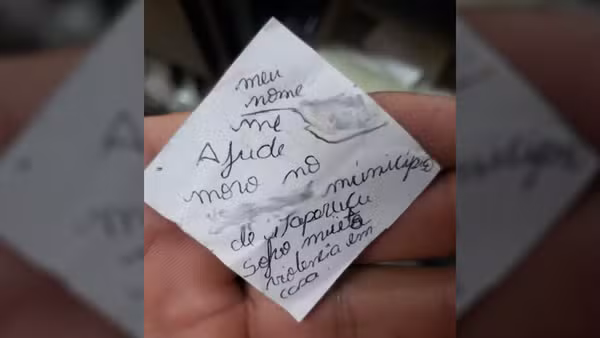 meu
nome
me
Ajude
moro no
município
de Itaporucu
Sofro muita
violencia em
casa